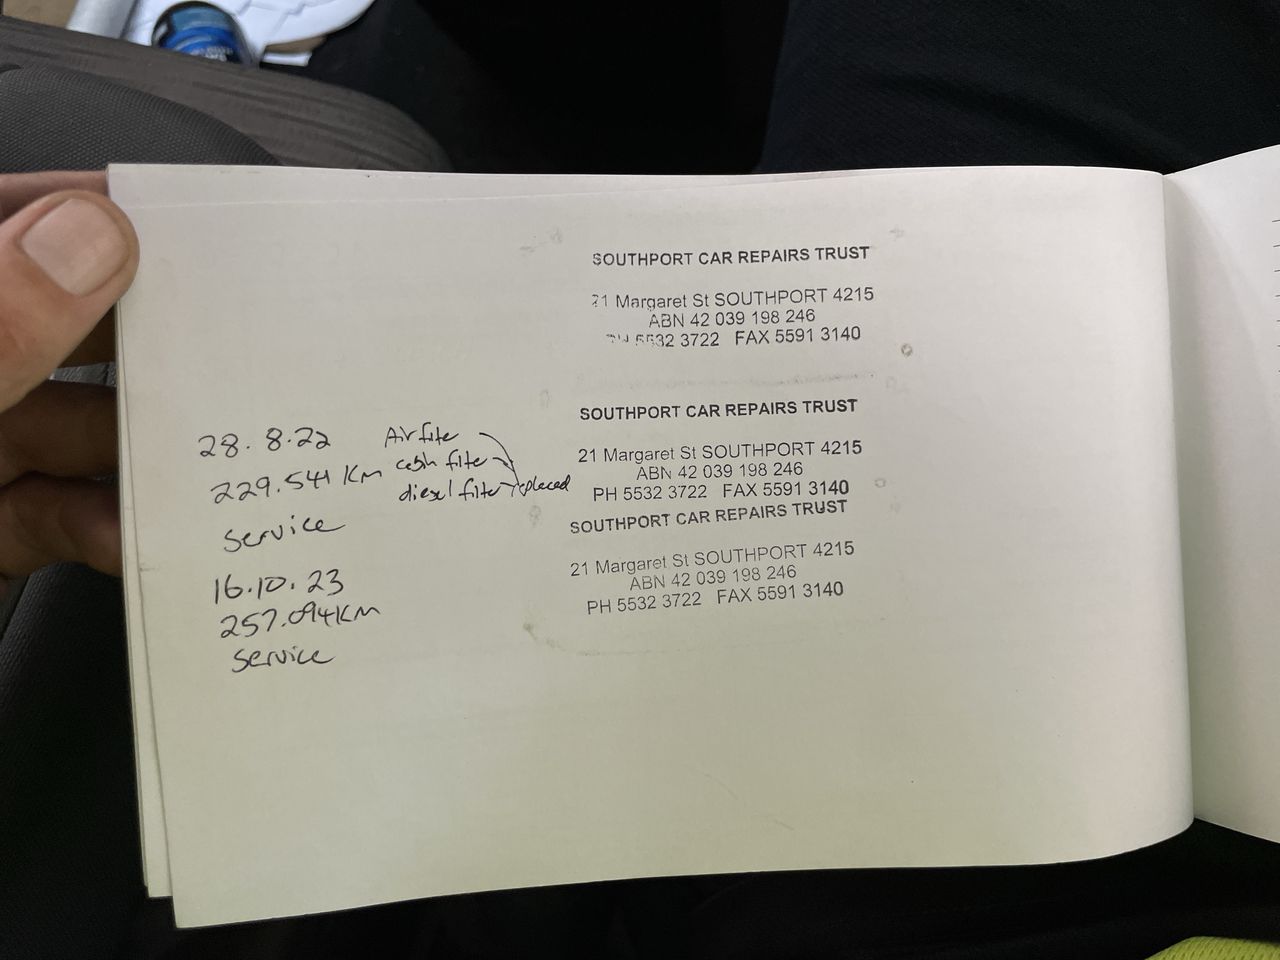 SOUTHPORT CAR REPAIRS TRUST
21 Margaret St SOUTHPORT 4215
ABN 42 039 198 246
PH 5532 3722 FAX 5591 3140
SOUTHPORT CAR REPAIRS TRUST
21 Margaret St SOUTHPORT 4215
ABN 42 039 198 246
PH 5532 3722 FAX 5591 3140
SOUTHPORT CAR REPAIRS TRUST
21 Margaret St SOUTHPORT 4215
ABN 42 039 198 246
PH 5532 3722 FAX 5591 3140
28.8.22 Air filte
229.541 KM cabin filter
diesel filter replaced
service
16.10.23
257.094KM
service